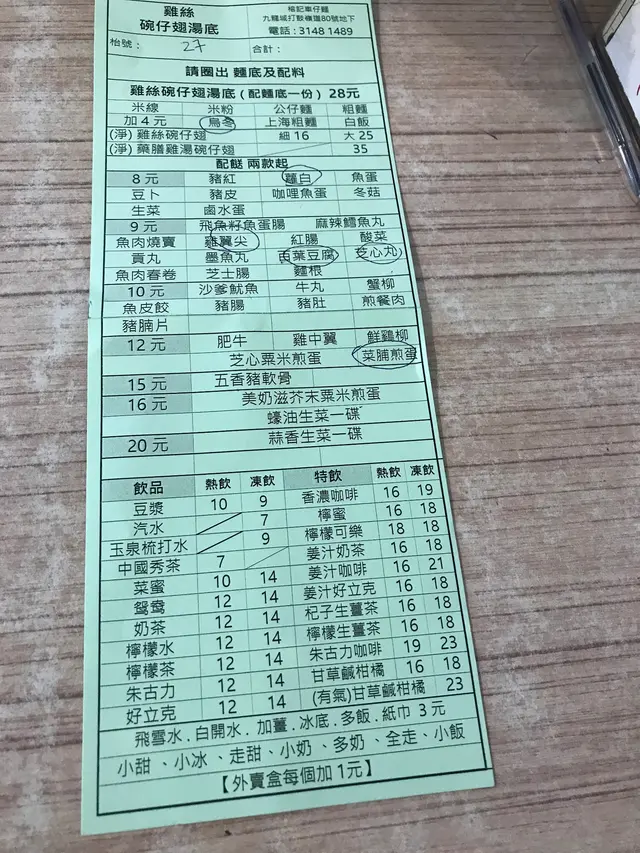 雞絲
碗仔翅湯底
榕記車仔麵
九龍城打鼓嶺道80號地下
電話：3148 1489
枱號： 27 合計：
請圈出 麵底及配料
雞絲碗仔翅湯底 ( 配麵底一份 ) 28元
米線 米粉 公仔麵 粗麵
加 4 元 烏冬 上海粗麵 白飯
(淨) 雞絲碗仔翅 細 16 大 25
(淨) 藥膳雞湯碗仔翅 35
配餸 兩款起
8 元 豬紅 蘿白 魚蛋
豆卜 豬皮 咖哩魚蛋 冬菇
生菜 鹵水蛋
9 元 飛魚籽魚蛋腸 麻辣鱈魚丸
魚肉燒賣 雞翼尖 紅腸 酸菜
貢丸 墨魚丸 百葉豆腐 芝心丸
魚肉春卷 芝士腸 麵根
10 元 沙爹魷魚 牛丸 蟹柳
魚皮餃 豬腸 豬肚 煎餐肉
豬腩片
12 元 肥牛 雞中翼 鮮雞柳
芝心粟米煎蛋 菜脯煎蛋
15 元 五香豬軟骨
16 元 美奶滋芥末粟米煎蛋
蠔油生菜一碟
20 元 蒜香生菜一碟
飲品 熱飲 凍飲 特飲 熱飲 凍飲
豆漿 10 9 香濃咖啡 16 19
汽水 7 檸蜜 16 18
玉泉梳打水 9 檸檬可樂 18 18
中國秀茶 7 姜汁奶茶 16 18
菜蜜 10 14 姜汁咖啡 16 21
鴛鴦 12 14 姜汁好立克 16 18
奶茶 12 14 杞子生薑茶 16 18
檸檬水 12 14 檸檬生薑茶 16 18
檸檬茶 12 14 朱古力咖啡 19 23
朱古力 12 14 甘草鹹柑橘 16 18
好立克 12 14 (有氣)甘草鹹柑橘 23
飛雪水 . 白開水 . 加薑 . 冰底 . 多飯 . 紙巾 3 元
小甜 、小冰 、走甜 、小奶 、多奶 、全走 、小飯
【外賣盒每個加 1元】